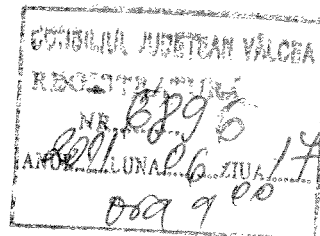 CONSILIUL JUDEȚEAN VÂLCEA
REGISTRATURĂ
NR. 6896
ANUL 2021 LUNA 06 ZIUA 17
ora 9 00